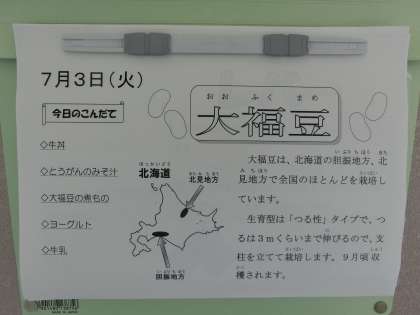 7月3日(火)
今日のこんだて
◇牛丼
◇とうがんのみそ汁
◇大福豆の煮もの
◇ヨーグルト
◇牛乳
おおふくまめ
大福豆
ほっかいどう
北海道
きたみちほう
北見地方
いぶりちほう
胆振地方
いぶりちほう きた
大福豆は、北海道の胆振地方、北
みちほう さいばい
見地方で全国のほとんどを栽培し
ています。
生育型は「つる性」タイプで、つ
の
るは3mくらいまで伸びるので、支
しゅう
柱を立てて栽培します。9月頃収
かく
穫されます。